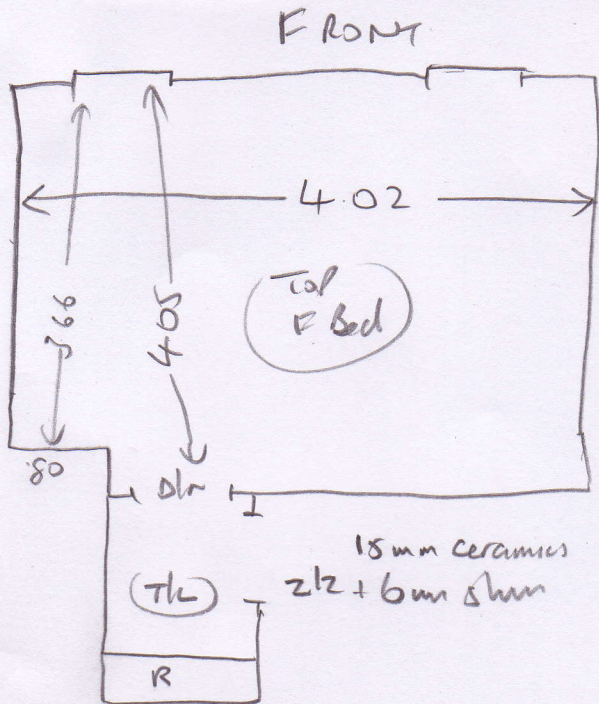 FRONT
4.02
3.66
4.05
Top
F Bed
.80
D/r
I
18mm ceramics
T/L
2/2 + 6mm
R